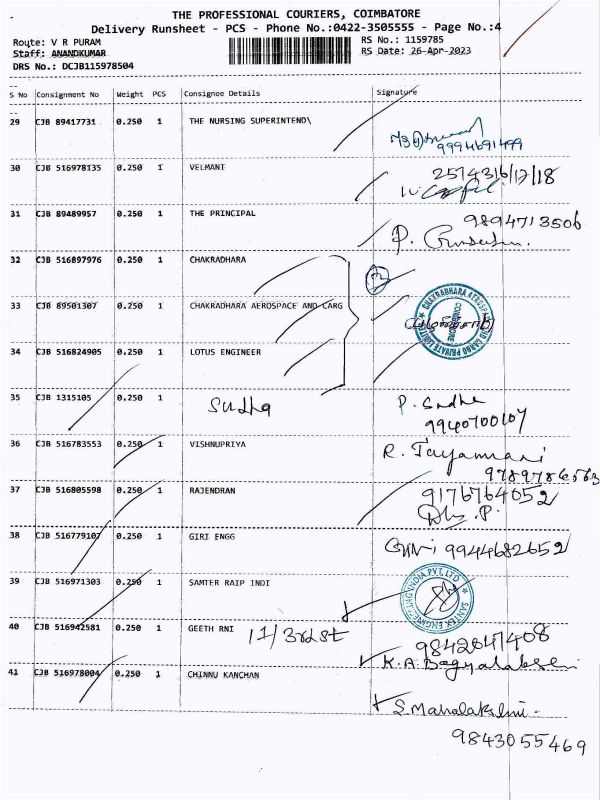 THE PROFESSIONAL COURIERS, COIMBATORE
Delivery Runsheet - PCS - Phone No.:0422-3505555 - Page No.:4
Route: V R PURAM
RS No.: 1159785
Staff: ANANDKUMAR
RS Date: 26-Apr-2023
DRS No.: DCJB115978504
S No Consignment No Weight PCS Consignee Details Signature
29 CJB 89417731 0.250 1 THE NURSING SUPERINTEND\
9994691499
30 CJB 516978135 0.250 1 VELMANI
2574316/17/18
31 CJB 89489957 0.250 1 THE PRINCIPAL
9894713506
P.
32 CJB 516897976 0.250 1 CHAKRADHARA
33 CJB 89501307 0.250 1 CHAKRADHARA AEROSPACE AND CARG
CHAKRADHARA AEROSPACE AND CARGO PRIVATE LIMITED
COIMBATORE
34 CJB 516824905 0.250 1 LOTUS ENGINEER
35 CJB 1315105 0.250 1 Sudha P. Sudha
9940700107
36 CJB 516783553 0.250 1 VISHNUPRIYA R. Jayamani
9789786563
37 CJB 516805598 0.250 1 RAJENDRAN 9176764052
38 CJB 516779107 0.250 1 GIRI ENGG Giri 9944682652
39 CJB 516971303 0.250 1 SAMTER RAIP INDI
ENGINEERING INDIA PVT. LTD
40 CJB 516942581 0.250 1 GEETH RNI 11/3rd St
9842047408
K.A. Bagyalakshmi
41 CJB 516978004 0.250 1 CHINNU KANCHAN
S. Mahalakshmi.
9843055469